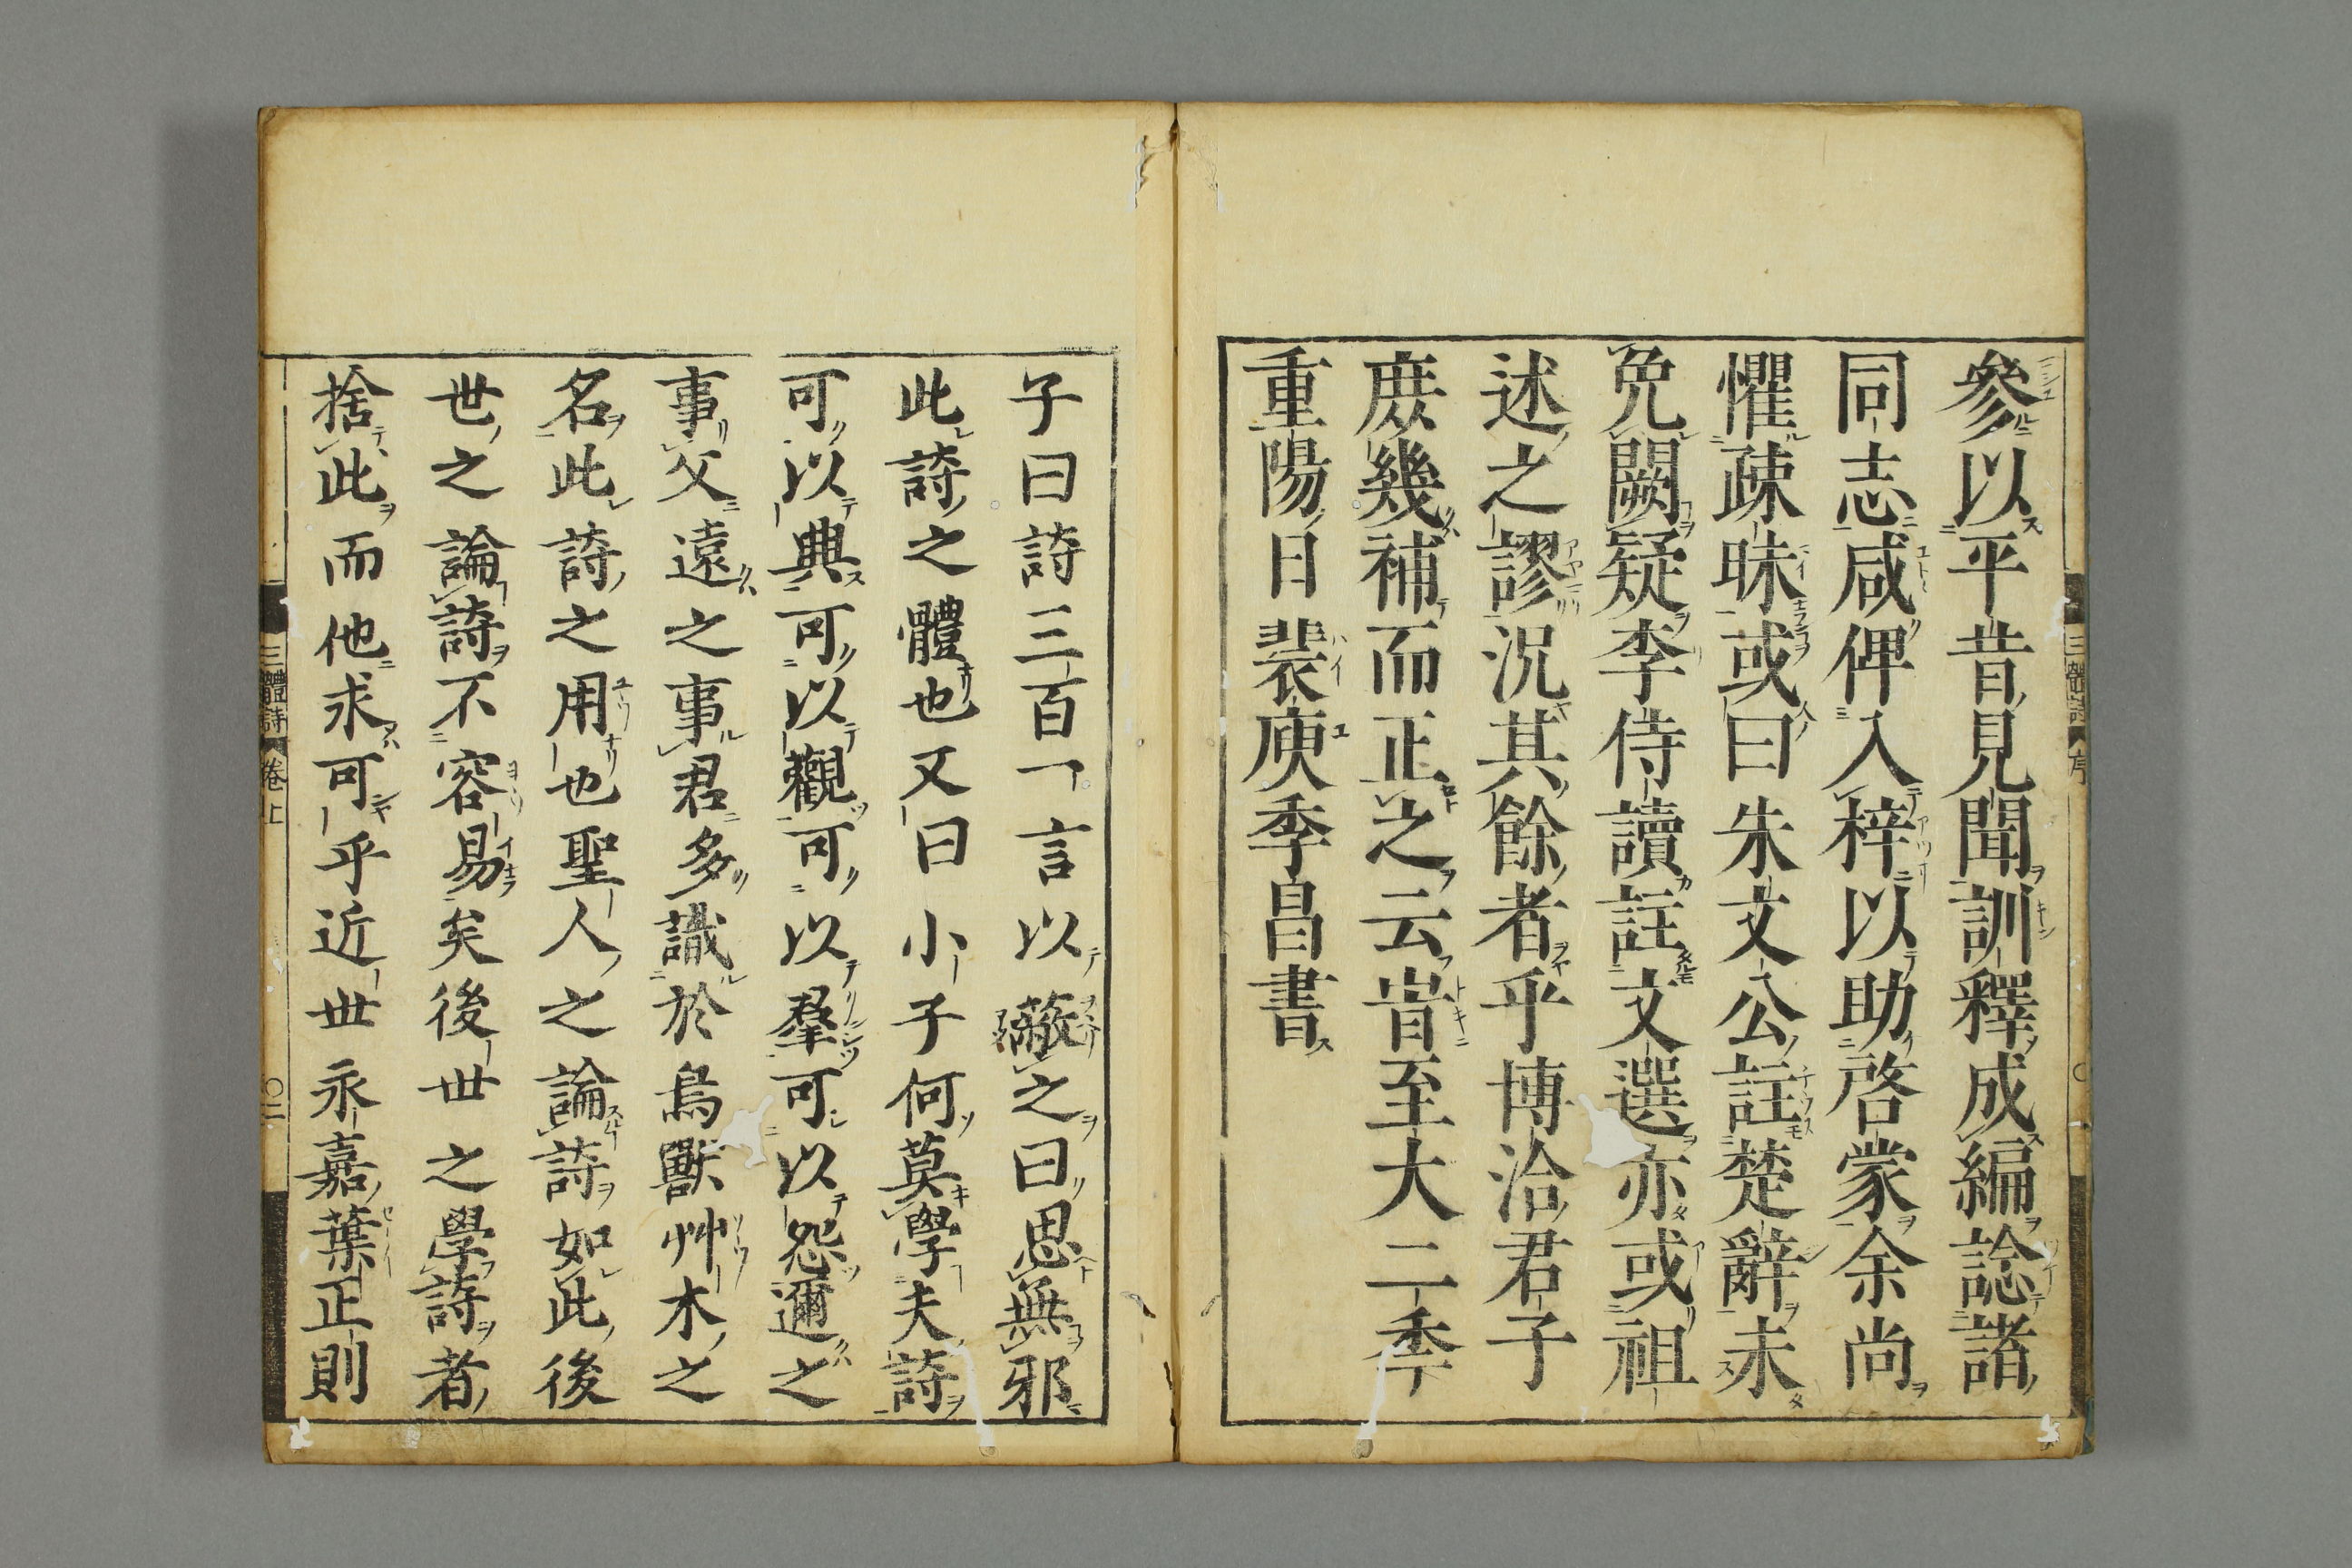 參以平昔見聞訓釋成編諗諸
同志咸俾入梓以助啓蒙余尚
懼疎昧或曰朱文公註楚辭未
免闕疑李侍讀註文選亦或祖
述之謬況其餘者乎博洽君子
庻幾補而正之云旹至大二季
重陽日裴庾季昌書
子曰詩三百一言以蔽之曰思無邪
此詩之體也又曰小子何莫學夫詩
可以興可以觀可以羣可以怨邇之
事父遠之事君多識於鳥獸艸木之
名此詩之用也聖人之論詩如此後
世之論詩不容易矣後世之學詩者
捨此而他求可乎近世永嘉葉正則
三體詩 卷上
〇二
三體詩 序